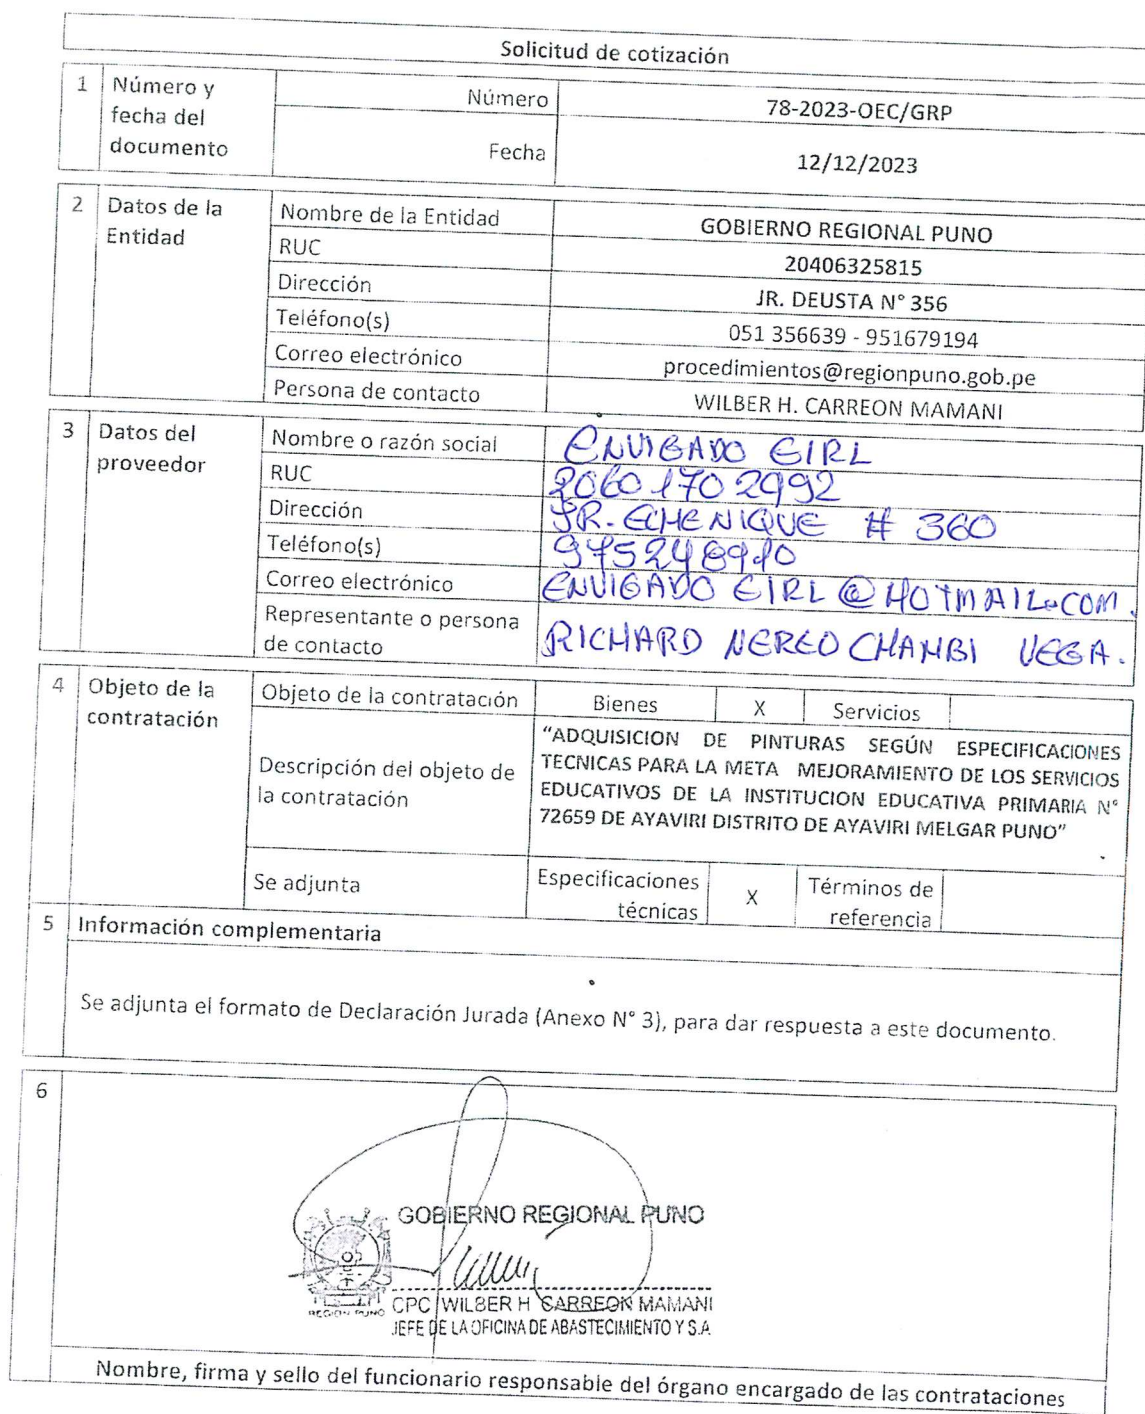 Solicitud de cotización
1 Número y fecha del documento
Número 78-2023-OEC/GRP
Fecha 12/12/2023
2 Datos de la Entidad
Nombre de la Entidad GOBIERNO REGIONAL PUNO
RUC 20406325815
Dirección JR. DEUSTA N° 356
Teléfono(s) 051 356639 - 951679194
Correo electrónico procedimientos@regionpuno.gob.pe
Persona de contacto WILBER H. CARREON MAMANI
3 Datos del proveedor
Nombre o razón social ENVIGADO EIRL
RUC 20601702992
Dirección JR. ECHENIQUE # 360
Teléfono(s) 975248910
Correo electrónico ENVIGADO EIRL @ HOTMAIL.COM.
Representante o persona de contacto RICHARD NEREO CHAMBI VEGA.
4 Objeto de la contratación
Objeto de la contratación Bienes X Servicios
Descripción del objeto de la contratación
"ADQUISICION DE PINTURAS SEGÚN ESPECIFICACIONES
TECNICAS PARA LA META MEJORAMIENTO DE LOS SERVICIOS
EDUCATIVOS DE LA INSTITUCION EDUCATIVA PRIMARIA N°
72659 DE AYAVIRI DISTRITO DE AYAVIRI MELGAR PUNO"
Se adjunta Especificaciones técnicas X Términos de referencia
5 Información complementaria
Se adjunta el formato de Declaración Jurada (Anexo N° 3), para dar respuesta a este documento.
6
GOBIERNO REGIONAL PUNO
REGION PUNO
CPC WILBER H CARREON MAMANI
JEFE DE LA OFICINA DE ABASTECIMIENTO Y S.A
Nombre, firma y sello del funcionario responsable del órgano encargado de las contrataciones